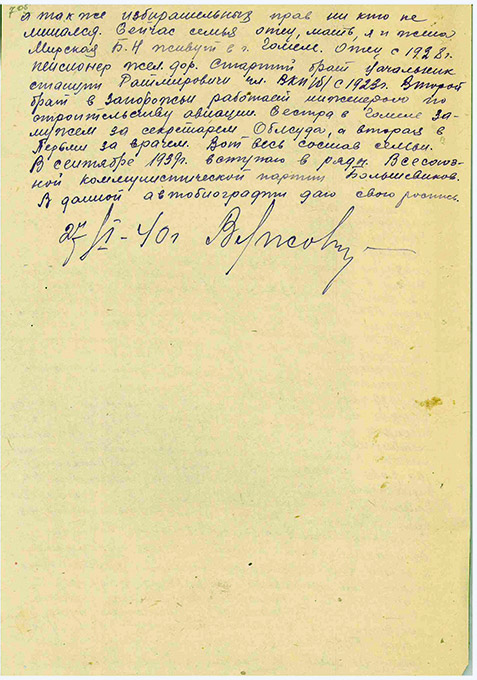 а также избирательных прав ни кто не
лишался. Сейчас семья отец, мать, я и жена
Мирская Б. Н живут в г. Гомеле. Отец с 1928 г.
пенсионер жел. дор. Старший брат начальник
станции Ратмировичи чл. ВКП/б/ с 1923 г. Второй
брат в Запорожьи работает инженером по
строительству авиации. Сестра в Гомеле за-
мужем за секретарем Облсуда, а вторая в
Перьми за врачем. Вот весь состав семьи.
В сентябре 1939 г. вступаю в ряды Всесоюз-
ной коммунистической партии Большевиков.
В данной автобиографии даю свою роспись.
27/VI-40 г